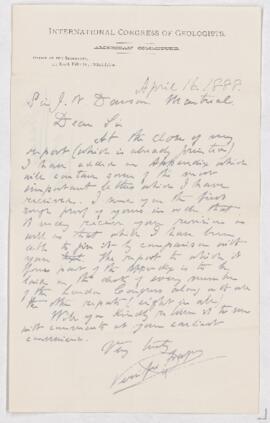 INTERNATIONAL CONGRESS OF GEOLOGISTS.
AMERICAN COMMITTEE.
OFFICE OF THE SECRETARY,
April 16, 1888.
Sir J. W. Dawson Montreal
Dear Sir
At the close of my
report (which is already printed)
I have added an Appendix which
will contain some of the most
important letters which I have
received. I send you the first
rough proof of yours in order that
it may receive your revision as
well as that which I have been
able to give it by comparison with
your the report to which it
forms part of the Appendix is to be
laid on the desk of every member
of the London Congress along with all
the other reports (eight in all)
Will you kindly return it to me
with comments at your earliest
convenience.
Very truly